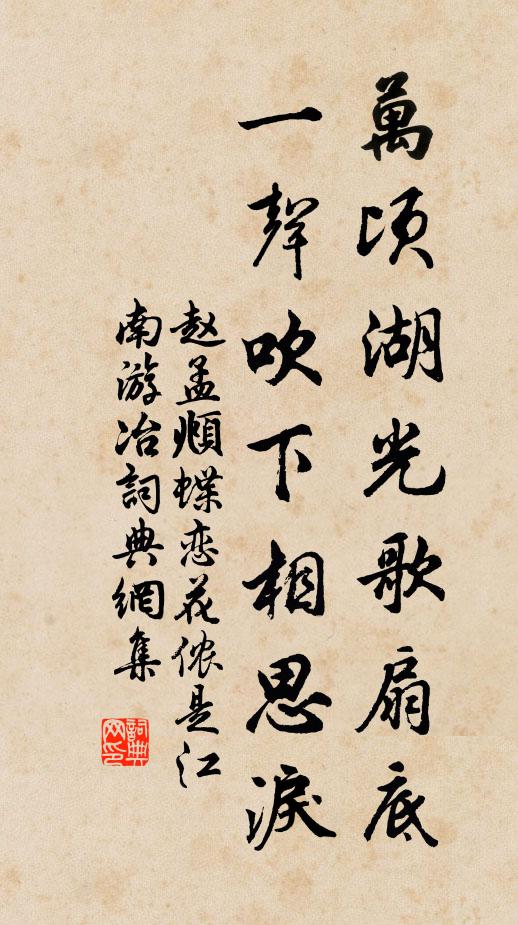 萬頃湖光歌扇底
一聲吹下相思淚
赵孟頫蝶恋花侬是江
南游冶詞典網集
詞典網印